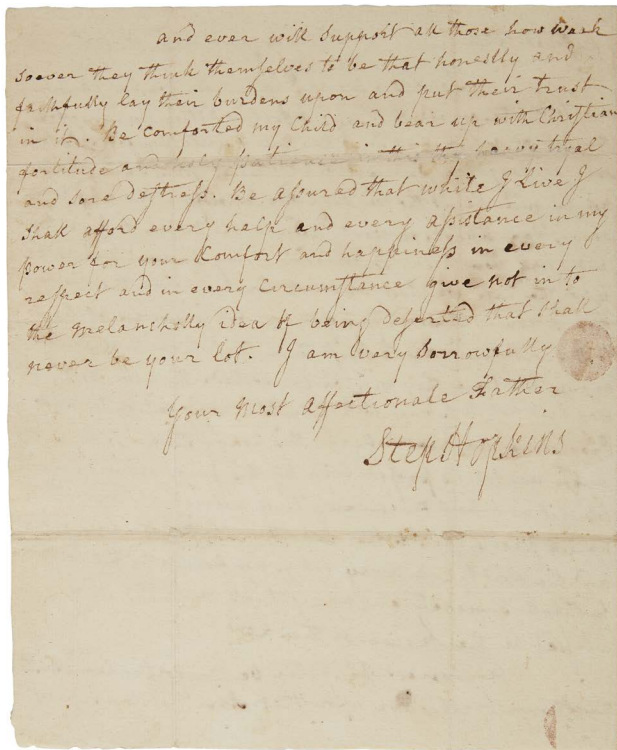 and ever will Support all those how weak
soever they think themselves to be that honestly and
faithfully lay their burdens upon and put their trust
in it. Be comforted my Child and bear up with Christian
fortitude and holy patience in this thy heavy tryal
and sore destress. Be assured that while I Live I
shall afford every help and every assistance in my
power for your Comfort and happiness in every
respect and in every Circumstance give not in to
the melancholly idea of being deserted that shall
never be your lot. I am very Sorrowfully
Your most affectionate Father
Step Hopkins